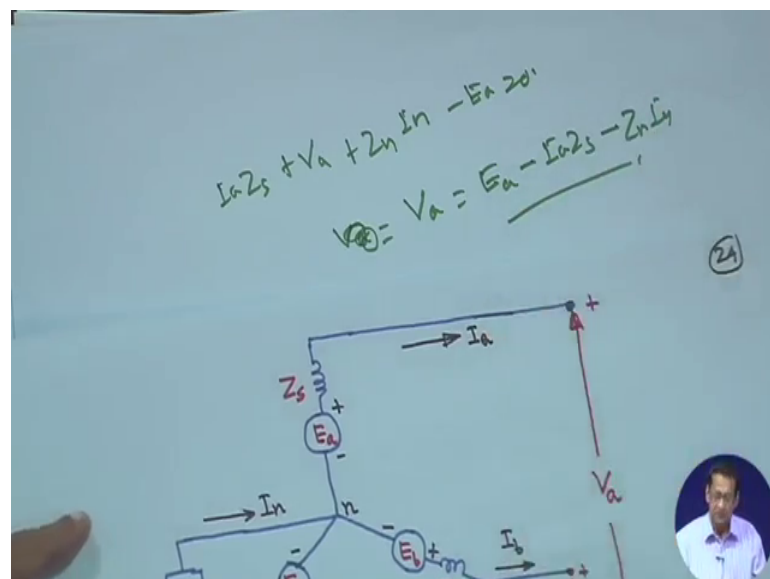 IaZs + Va + Zn In - Ea = 0
= Va = Ea - IaZs - Zn In
24
+
Ia
Zs
+
Ea
-
Va
In
n
-
-
Eb
+
Ib
+